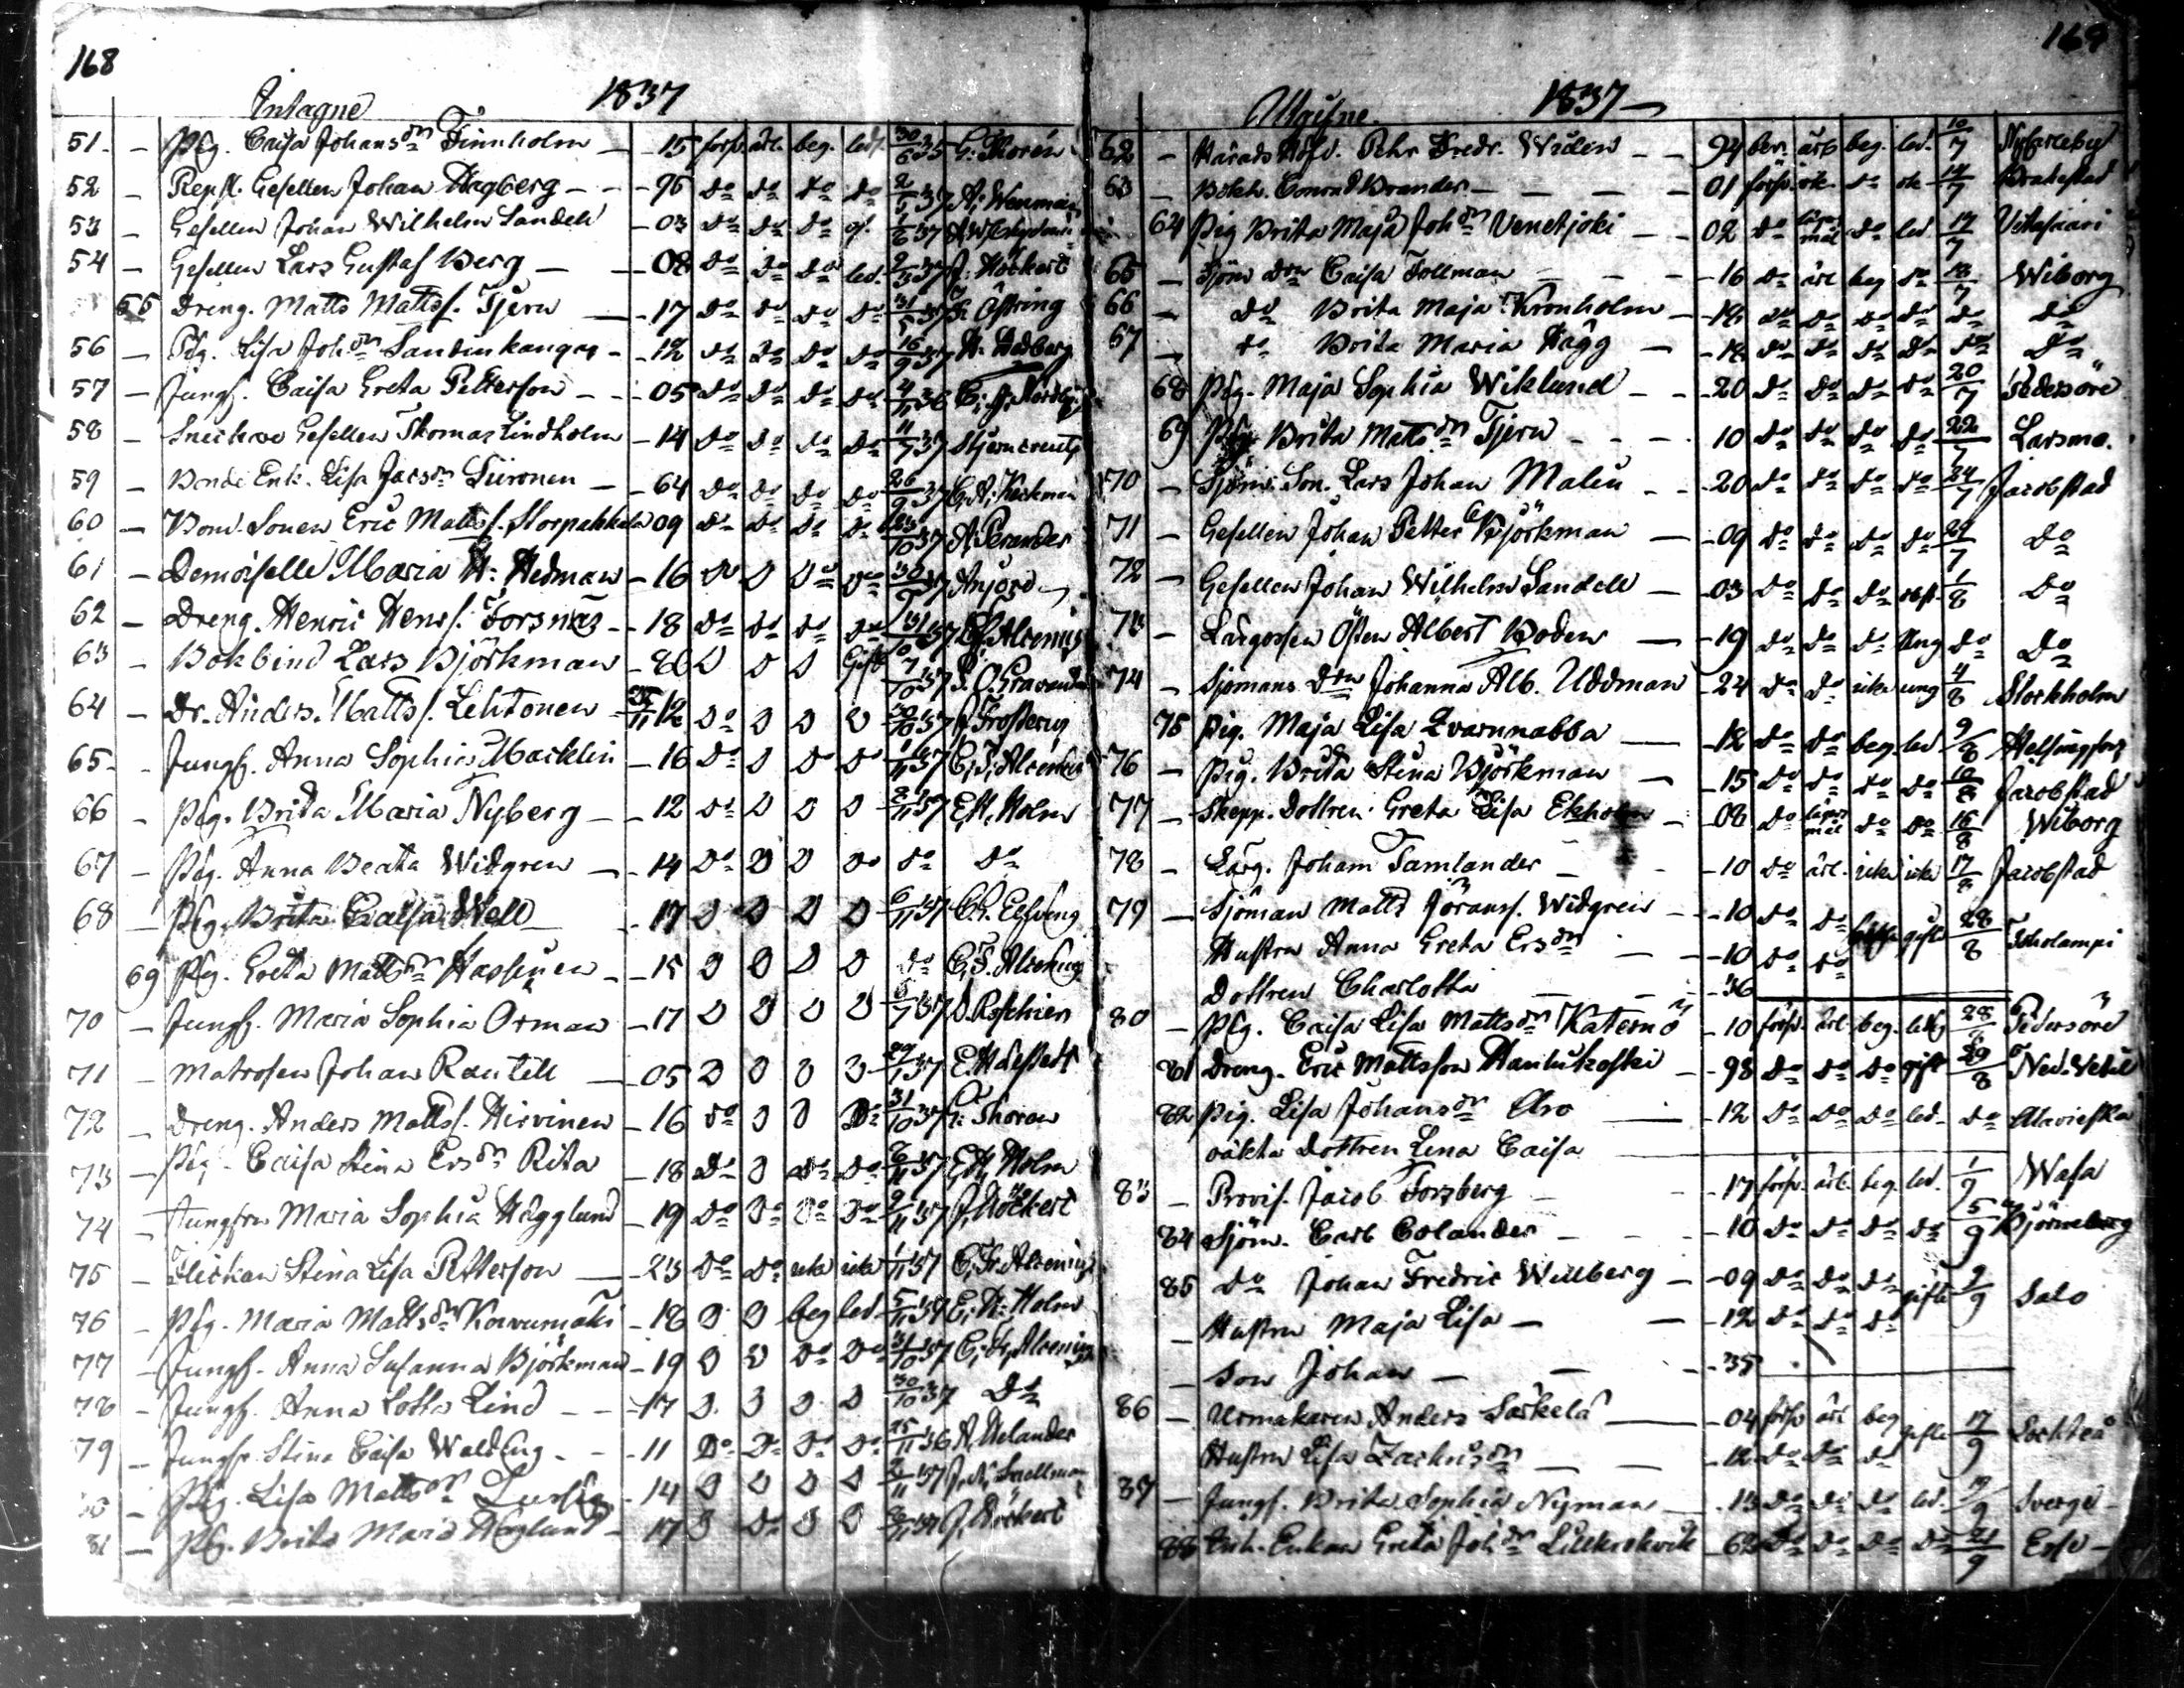 168
Intagne 1837
51. - Pig. Caisa Johansdn Finnholm - 15 försv. ärl. beg. led. 30/6 35 G. Thorén
52 - Repsl. Gesellen Johan Hagberg - - 96 do do do do 2/5 37 A. Wenman
53 - Gesellen Johan Wilhelm Sandell - 03 do do do
54 - Gesellen Lars Gustaf Berg - - 08 do do do led. 2/5 37 J. Höckert
55 Dreng. Matts Mattss. Tjern - 17 do do do do 31/5 37 Östring
56 - Pig. Lisa Johdn Sandinkangas - 12 do do do do 16/9 37 H. Hedberg
57 - Jungf. Caisa Greta Petterson - - 05 do do do do 4/11 36
58 - Snickare Gesellen Thomas Lindholm - 14 do do do do 11/7 37 Stjerncreutz
59 - Bonde Enk. Lisa Jacsdn Siironen - 64 do do do do 26/9 37 C. A. Keckman
60 - Bond. Sonen Eric Mattss. Storpakkala 09 do do do do 23/10 37 A. Perander
61 - Demoiselle Maria H. Hedman - 16 do D do do 30/9 37
62 - Dreng. Henric Henrs. Forsnäs - 18 do do do do 31/10 37 Alcenius
63 - Bokbind Lars Björkman - 86 D D D Gift 7/10 37
64 - Dr. Anders Mattss. Lehtonen 12 do D D D 30/10 37 J. Frosterus
65 - Jungf. Anna Sophia Macklin - 16 do D do do 1/11 37 C. F. Alcenius
66 - Pig. Brita Maria Nyberg - 12 do D D D 8/11 37 E. H. Holm
67 - Pig. Anna Beata Widgren - 14 do D D do do do
68 - Pig. Brita Caisa Well - 17 D D D D 6/11 37 C. R. Elfving
69 Pig. Greta Mattsdn Hassinen - 15 D D D D do C. F. Alcenius
70 - Jungf. Maria Sophia Örman - 17 D D D D 37 D. Roschier
71 - Matrosen Johan Rantell - 05 D D D D 29/7 37 E. Hälstedt
72 - Dreng. Anders Mattss. Hirvinen - 16 do D D do 31/10 37 G. Thoren
73 - Pig. Caisa Stina Ersdn Rita - 18 do D do do 6/11 37 E. H. Holm
74 - Jungfru Maria Sophia Hägglund - 19 do do do do 9/11 37 J. Höckert
75 - Flickan Stina Lisa Petterson - 23 do do icke icke 1/11 37 C. Fr. Alcenius
76 - Pig. Maria Mattsdn Korvumäki - 18 D D beg led 5/11 37 E. H. Holm
77 - Jungf. Anna Susanna Björkman - 19 D D do do 31/10 37 C. Fr. Alcenius
78 - Jungf. Anna Lotta Lind - - 17 D D D D 30/10 37 do
79 - Jungfr. Stina Caisa Walding - - 11 do do do do 25/11 36 A. Helander
80 - Pig. Lisa Mattsdn - 14 D D D D 2/11 37 J. N. Snellman
81 - Pig. Brita Maria Höglund - 17 D do D D 37 J. Höckert
169
Utgifne. 1837 -
62 - Härads Höfd. Pehr Fredr. Widén - - 94 ber. ärb beg. led. 10/7 Nykarleby
63 - Bokh. Conrad Brander - - 01 försv. ok. do ok 14/7 Brahestad
64 Pig Brita Maja Johdn Venetjoki - - 02 do lägersmål do led 17/7 Vitasaari
65 - Sjöm Dtr Caisa Tollman - - 16 do ärl beg do 18/7 Wiborg
66 - do Brita Maja Kronholm - 18 do do do do do do
67 - do Brita Maria Hägg - 18 do do do do do do
68 Pig. Maja Sophia Wiklund - - 20 do do do do 20/7 Pedersöre
69 Pig Brita Mattsdn Tjern - - - 10 do do do do 22/7 Larsmo.
70 - Sjöm. Son. Lars Johan Malin - - 20 do do do do 24/7 Jacobstad
71 - Gesellen Johan Petter Björkman - 09 do do do do 29/7 do
72 - Gesellen Johan Wilhelm Sandell - 03 do do do 1/8 do
73 - Lärgossen Östen Albert Boden - 19 do do do Ung do do
74 - Sjömans Dtrn Johanna Alb. Uddman - 24 do do icke ung 4/8 Stockholm
75 Pig. Maja Lisa Qvarnnabba - 12 do do beg. led 9/8 Helsingfors
76 - Pig. Brita Stina Björkman - 15 do do do do 10/8 Jacobstad
77 - Skepp. Dottren Greta Lisa Ekholm - 08 do lägersmål do do 16/8 Wiborg
78 - Lärg. Joham Tamlander - - 10 do ärl. icke icke 17/8 Jacobstad
79 - Sjöman Matts Jöranss. Widgren - - 10 do do gifte 28/8 Toholampi
Hustru Anna Greta Ersdn - - 10 do do
Dottren Charlotta - - - 36
80 - Pig. Caisa Lisa Mattsdn Katernö - 10 försv. ärl. beg. ledig 28/8 Pedersöre
81 Dreng. Eric Mattsson Hanhukoski - - 98 do do do gift 29/8 Ned. Vetil
82 Pig. Lisa Johansdn Alro - 12 do do do led. do Alavieska
oäkta dottren Lena Caisa
83 - Provis. Jacob Forsberg - - 17 försv. ärl. beg. led. 1/9 Wasa
84 Sjöm. Carl Colander - - - 10 do do do do 5/9 Björneborg
85 do Johan Fredric Willberg - - 09 do do do gifte 9/9 Salo
- Hustru Maja Lisa - - - 12 do do do
- Son Johan - - - 35
86 - Urmakaren Anders Särkelä - 04 försv ärl beg gifte 17/9 Lochteå
Hustru Lisa Zachrisdn - - - 12 do do do
87 - Jungf. Brita Sophia Nyman - 13 do do do led. 19/9 Sverge -
88 Enkan Greta Johdn Lillkrokvik - 62 do do do do 21/9 Esse -